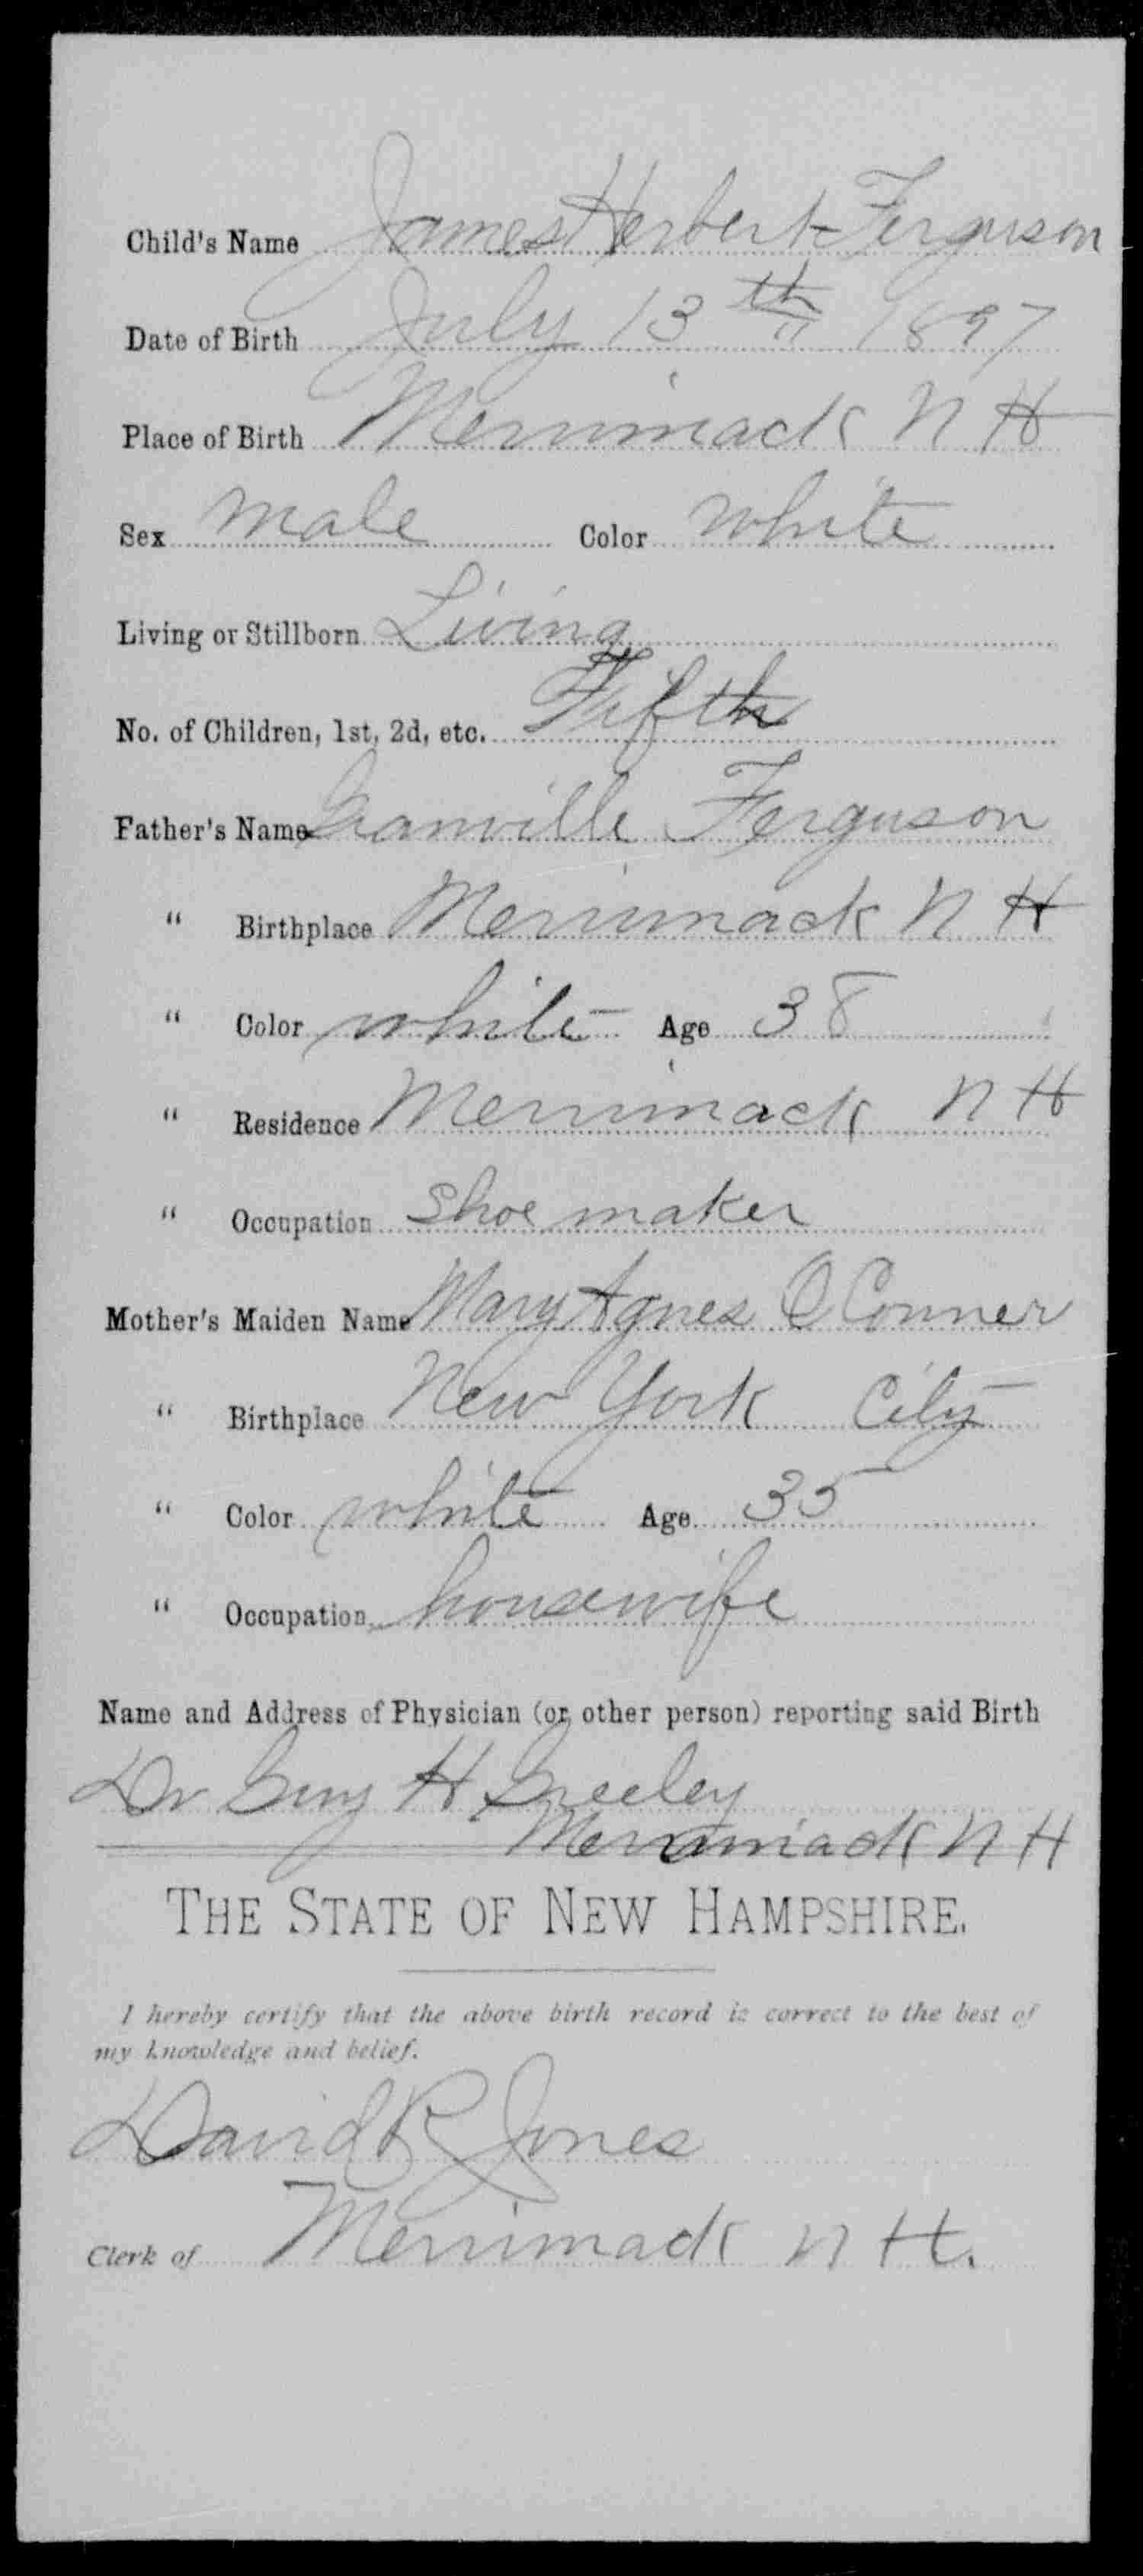 Child's Name James Herbert Ferguson
Date of Birth July 13th 1897
Place of Birth Merrimack N H
Sex male Color white
Living or Stillborn Living
No. of Children, 1st, 2d, etc. Fifth
Father's Name Granville Ferguson
" Birthplace Merrimack N H
" Color white Age 38
" Residence Merrimack N H
" Occupation Shoe maker
Mother's Maiden Name Mary Agnes O Conner
" Birthplace New York City
" Color white Age 35
" Occupation housewife
Name and Address of Physician (or other person) reporting said Birth
Dr Guy H Greeley
Merrimack N H
THE STATE OF NEW HAMPSHIRE.
I hereby certify that the above birth record is correct to the best of
my knowledge and belief.
David R Jones
Clerk of Merrimack N H.